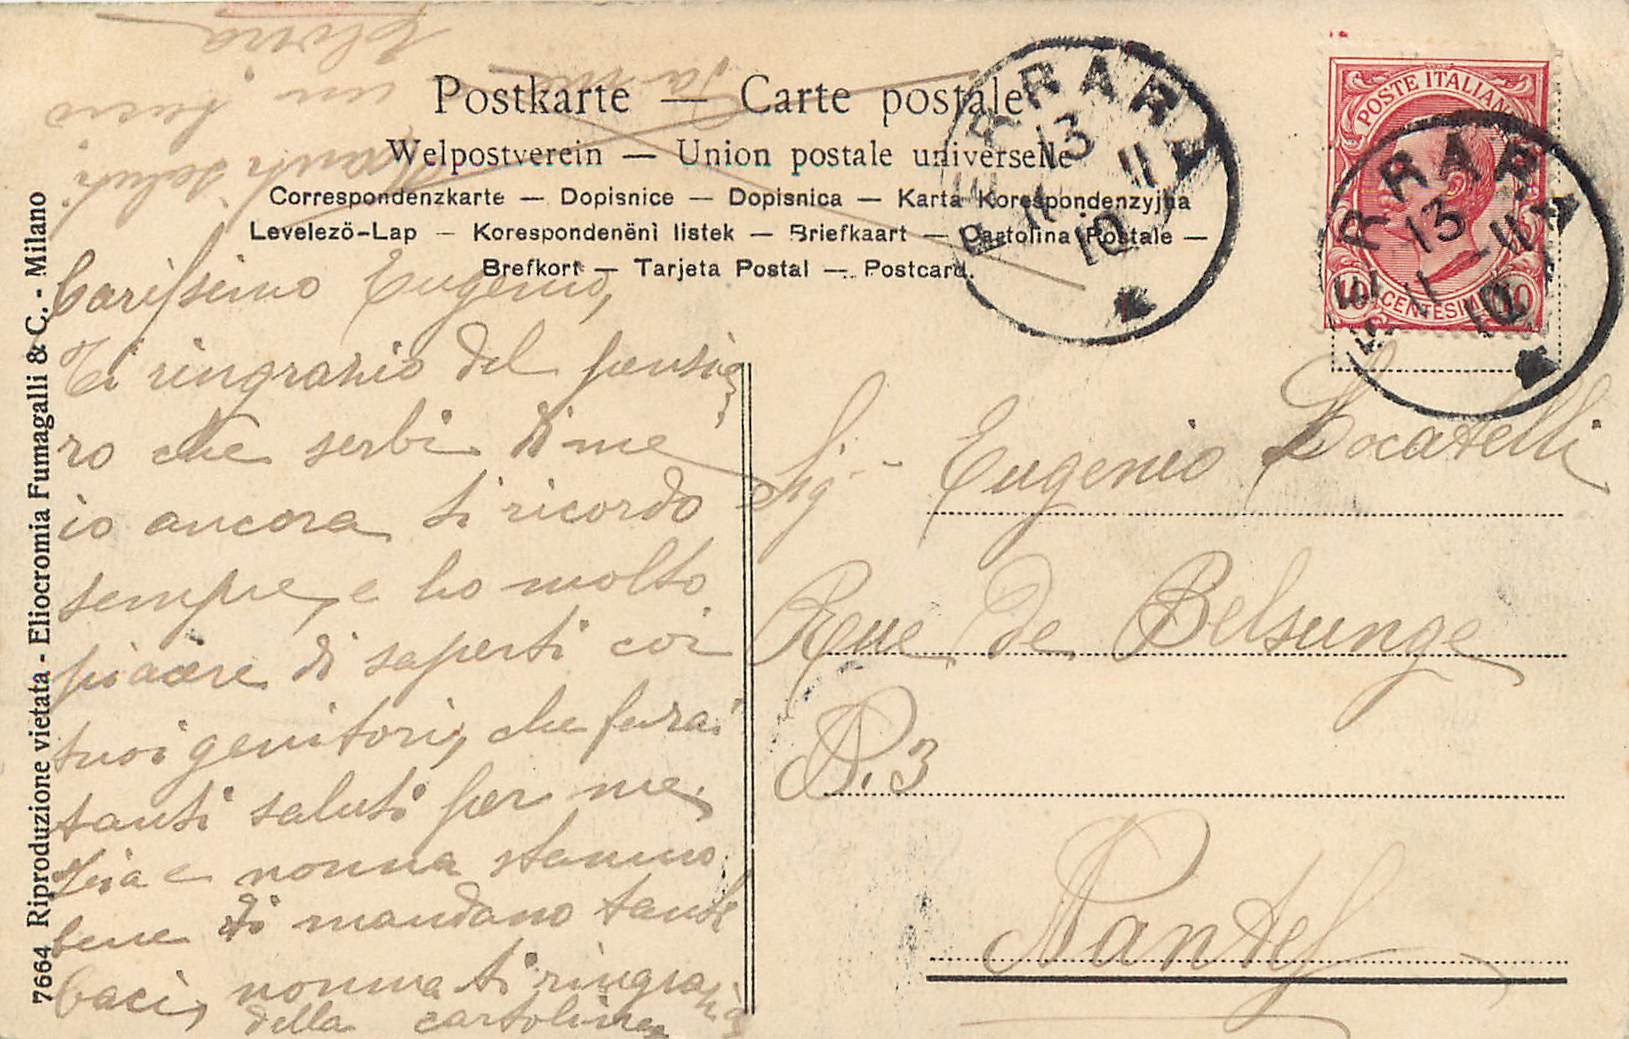 Postkarte — Carte postale
Welpostverein — Union postale universelle
Correspondenzkarte — Dopisnice — Dopisnica — Karta Korespondenzyjna
Levelezö-Lap — Korespondenënì listek — Briefkaart — Cartolina Postale —
Brefkort — Tarjeta Postal — Postcard.
POSTE ITALIANE
10 CENTESIMI 10
FERRARA
13
11 - 11
10
FERRARA
13
11 - 11
10
7664 Riproduzione vietata - Eliocromia Fumagalli & C. - Milano
Carissimo Eugenio,
Ti ringrazio del pensie
ro che serbi di me
io ancora ti ricordo
sempre, e ho molto
piacere di saperti coi
tuoi genitori, che farai
tanti saluti per me,
Zia e nonna stanno
bene ti mandano tanti
baci, nonna ti ringrazia
della cartolina
tanti saluti
un bacio
Sig. Eugenio Locatelli
Rue de Belsunge
P. 3
Nantes